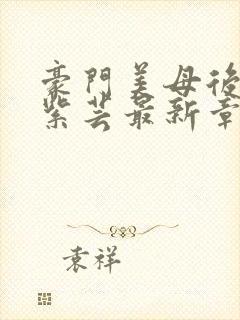 豪門美母後
紫芸最新章
袁祥